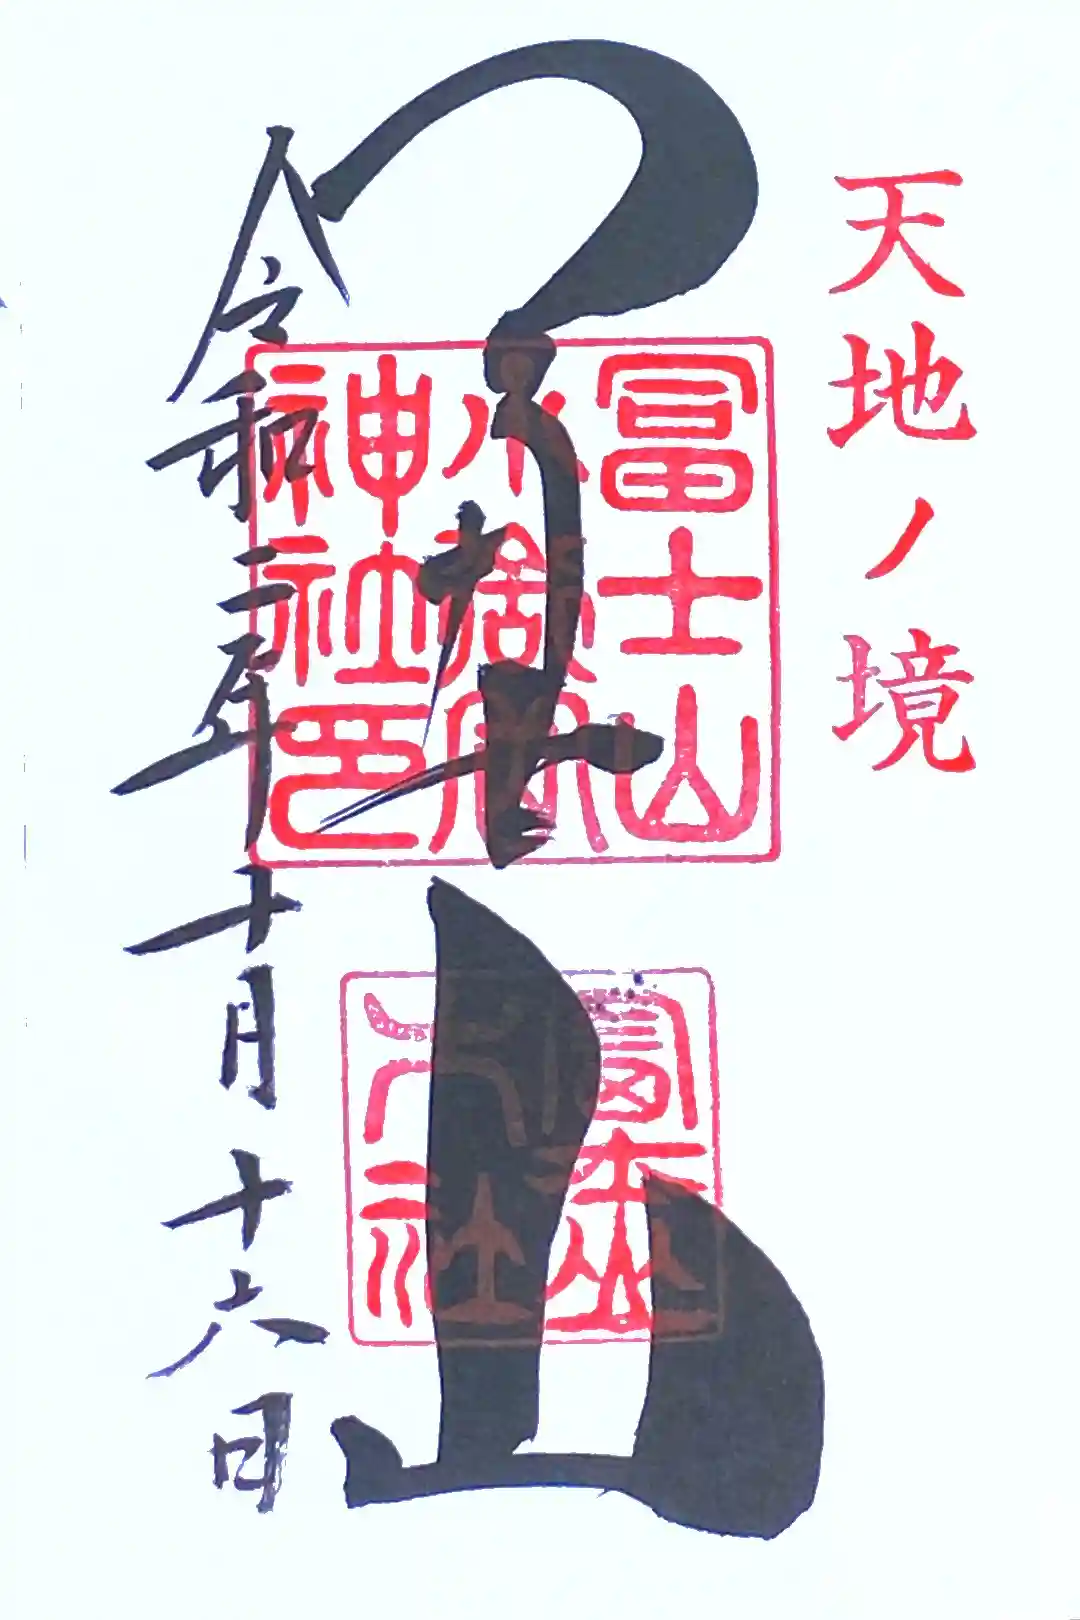 天地ノ境
冨士山
冨士山
小御嶽
神社印
令和二年十月十六日